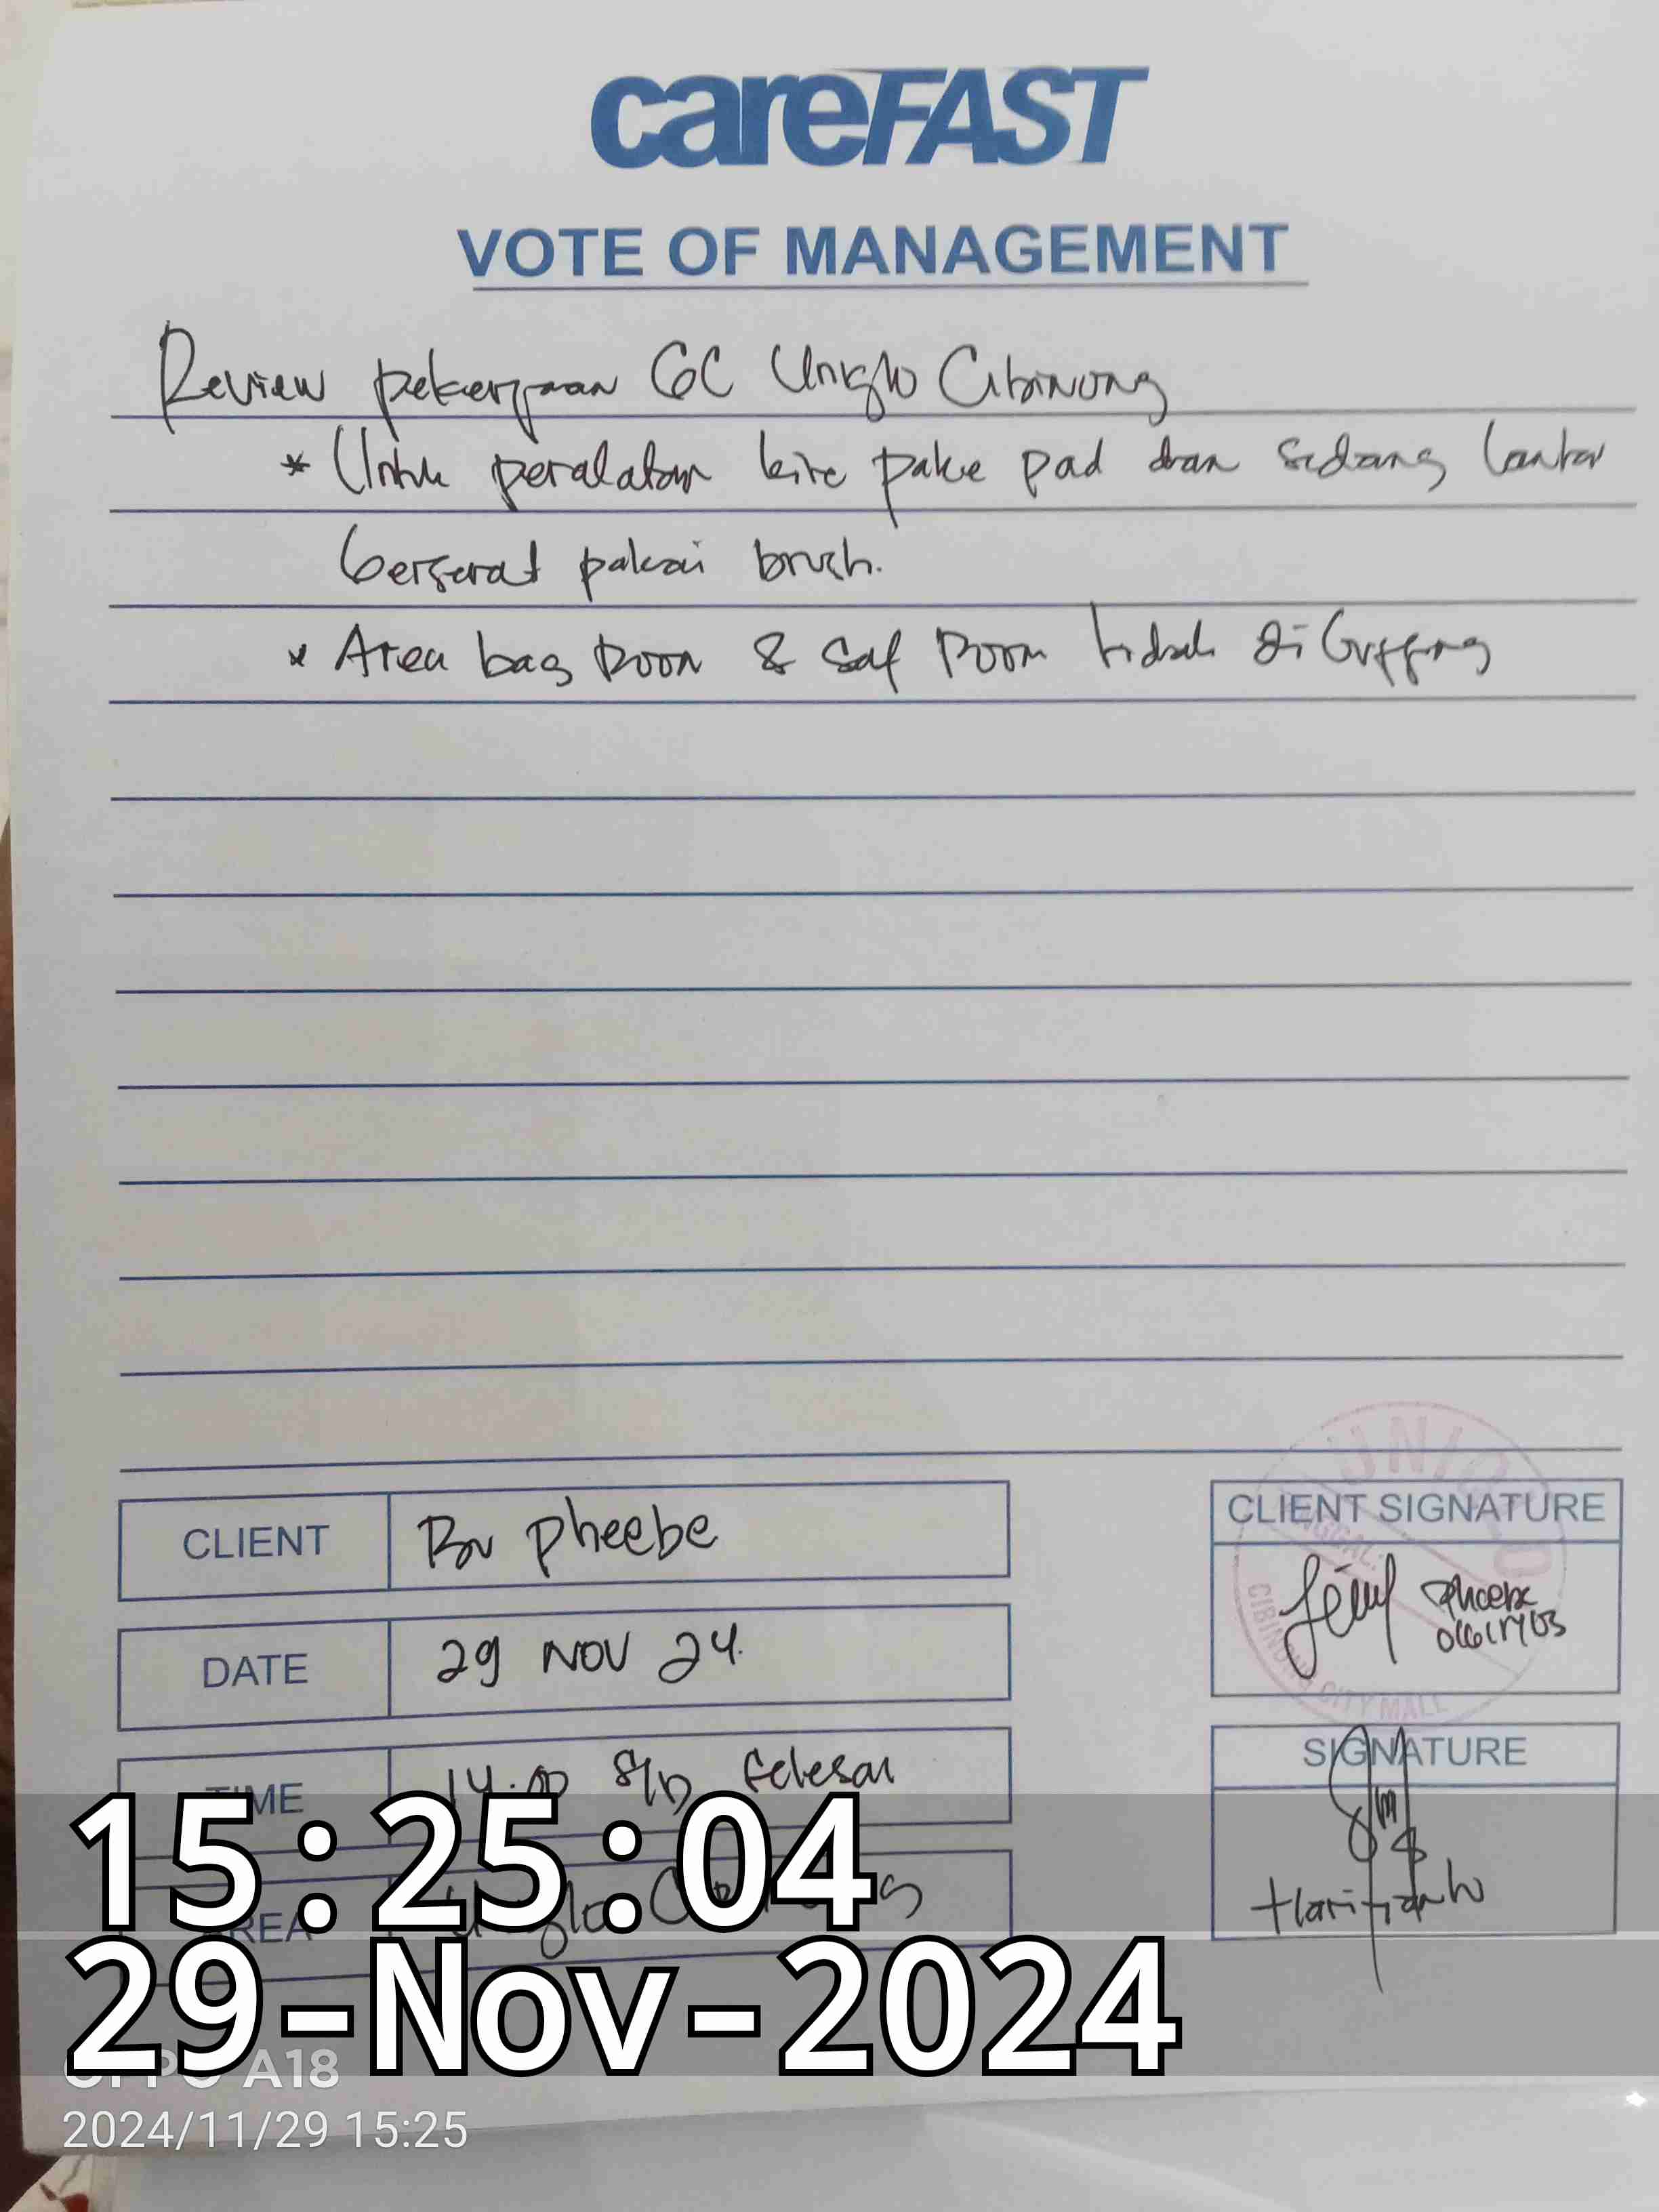 careFAST
VOTE OF MANAGEMENT
Review pekerjaan GC Uniqlo Cibinong
* Untuk peralatan kita pake pad dan sedang lantai
berserat pakai brush.
* Area bag Room & Saf Room tidak di
CLIENT Bu Pheebe
DATE 29 NOV 24.
TIME 14.00 S/D Selesai
AREA Uniqlo
CLIENT SIGNATURE
UNIQLO
TANGGAL:
CIBINONG CITY MALL
Phoebe
SIGNATURE
Haritianto
15:25:04
29-Nov-2024
OPPO A18
2024/11/29 15:25